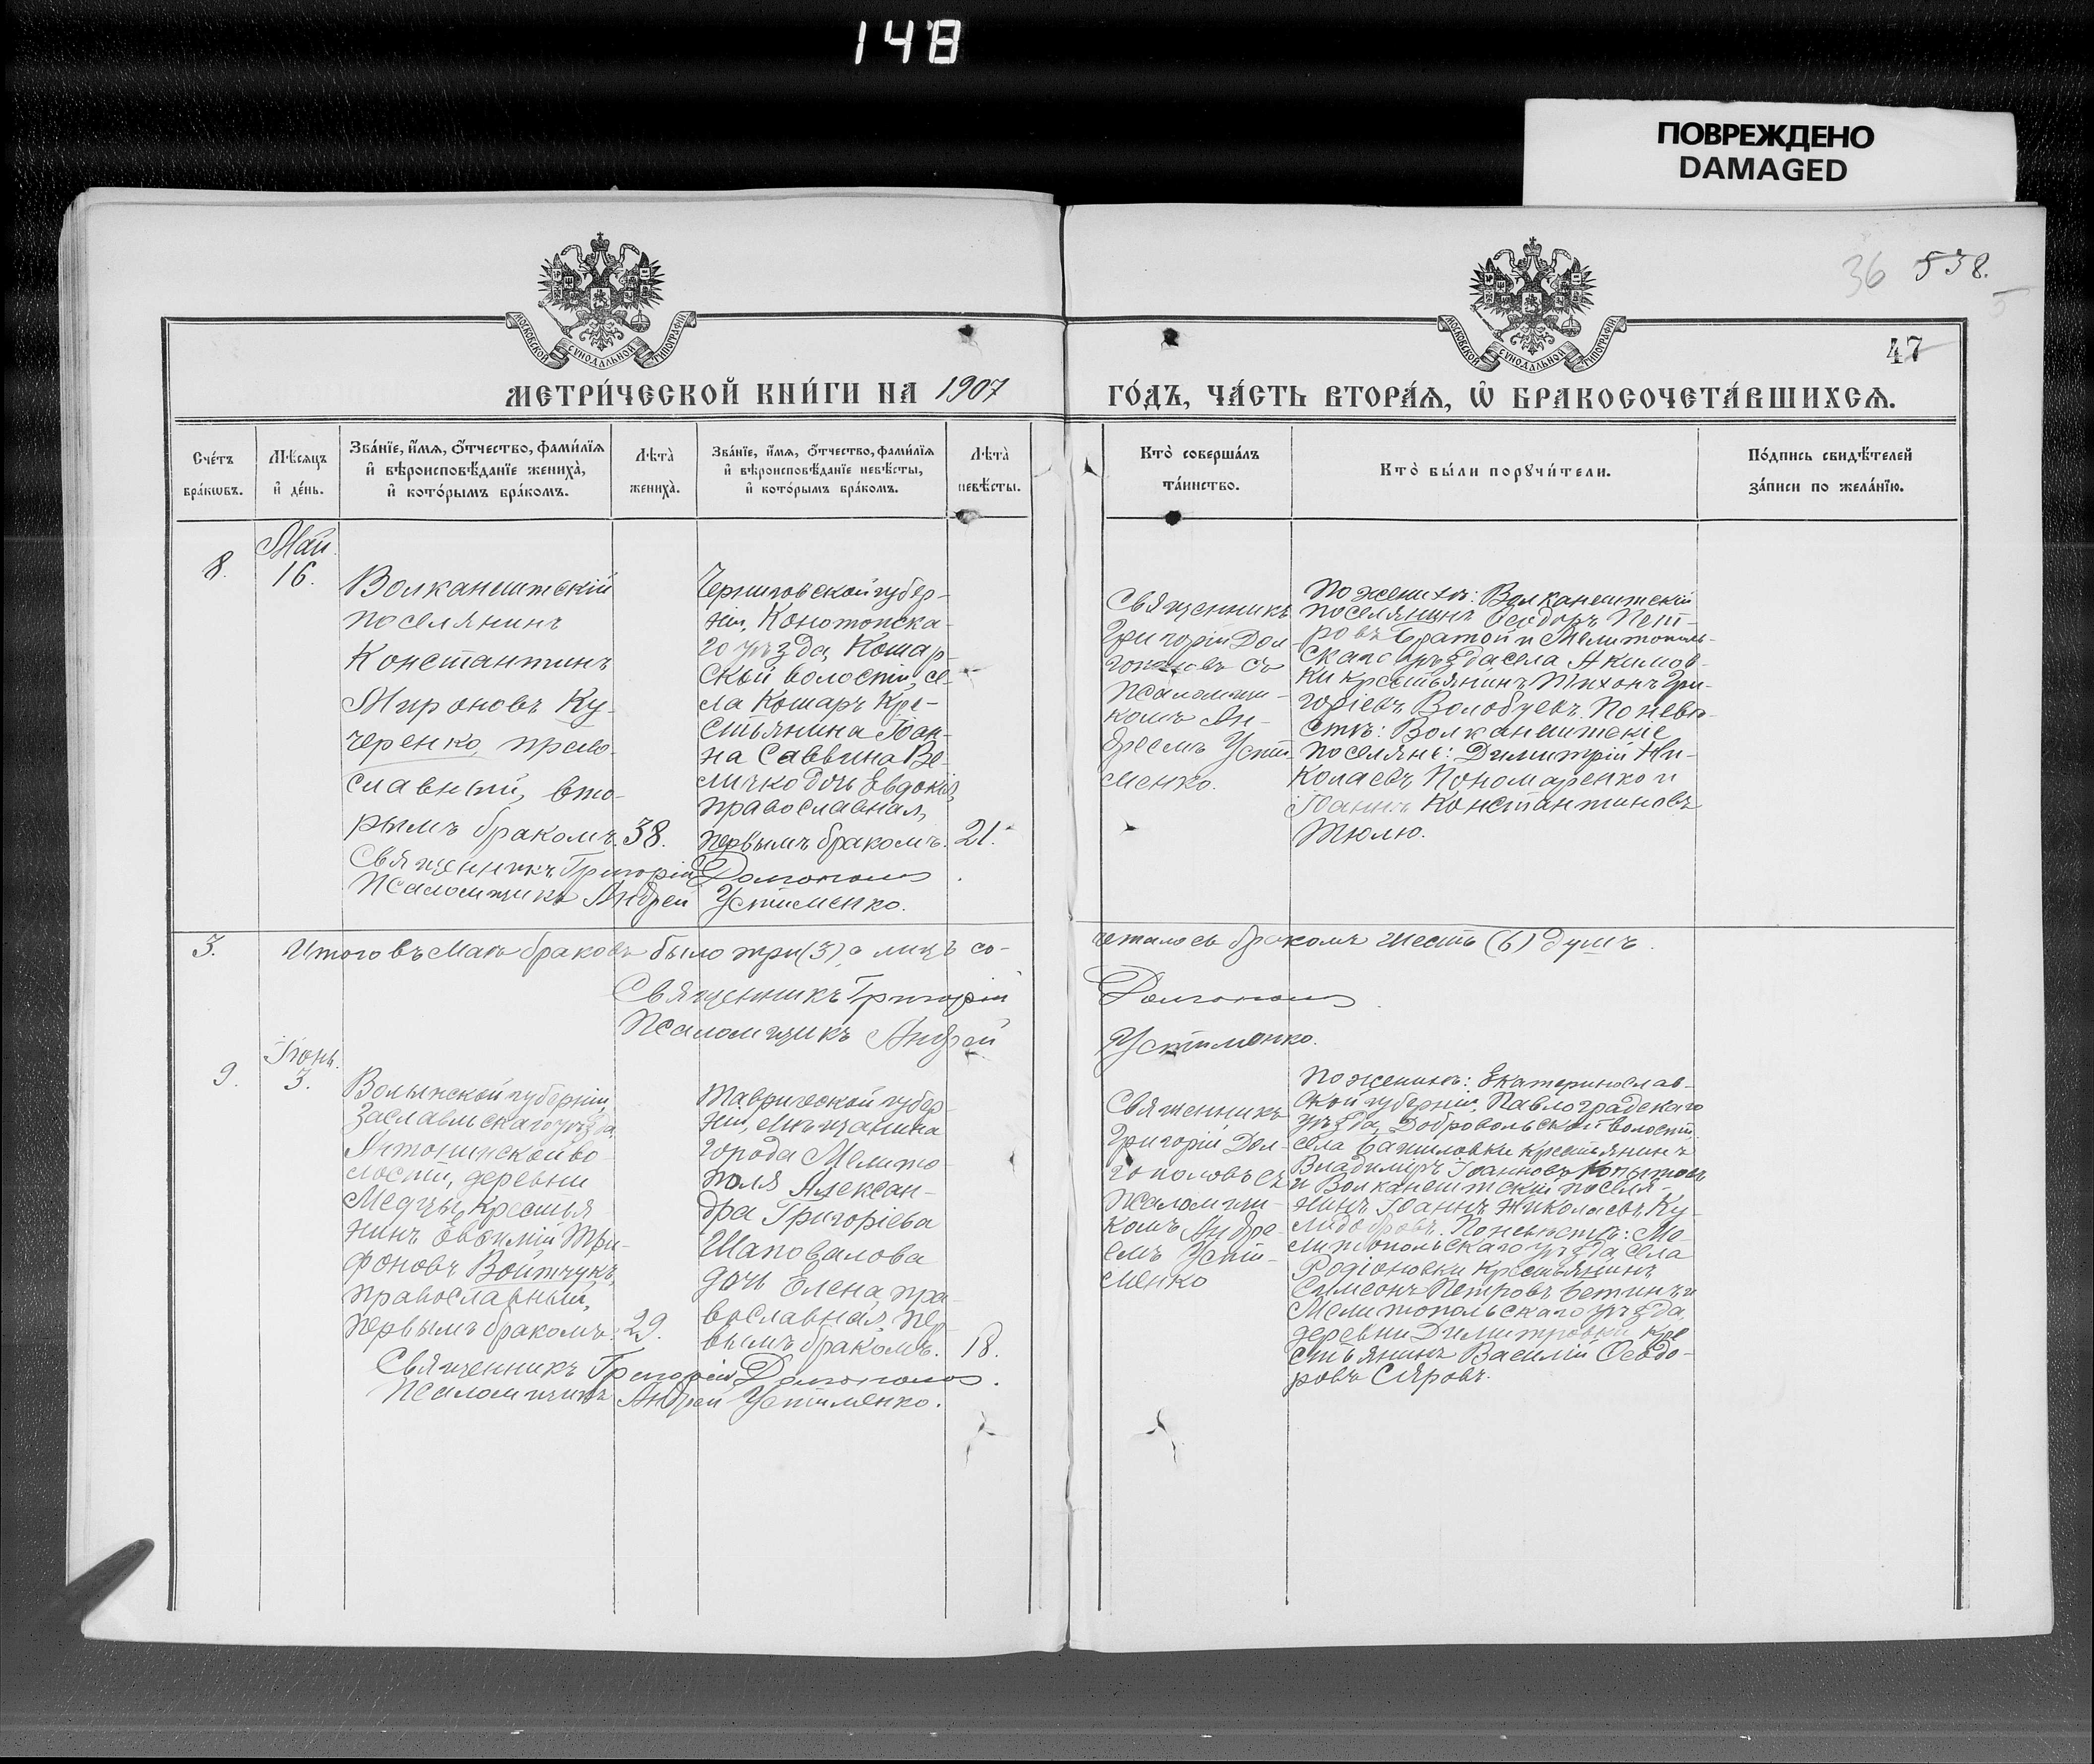 148
ПОВРЕЖДЕНО
DAMAGED
36 538.
МОСКОВСКОЙ СѴНОДАЛЬНОЙ ТИПОГРАФІИ
МОСКОВСКОЙ СѴНОДАЛЬНОЙ ТИПОГРАФІИ
47
МЕТРИ́ЧЕСКОЙ КНИ́ГИ НА 1907
ГО́ДЪ, ЧА́СТЬ ВТОРА́Ѧ, Ѽ БРАКОСОЧЕТА́ВШИХСѦ.
Сче́тъ
бра́кѡвъ.
Мѣ́сѧцъ
и҆ де́нь.
Зва́нїе, и҆́мѧ, ѻ҆́тчество, фами́лїѧ
и҆ вѣроисповѣ́данїе жениха̀,
и҆ кото́рымъ бра́комъ.
Лѣта̀
жениха̀.
Зва́нїе, и҆́мѧ, ѻ҆́тчество, фами́лїѧ
и҆ вѣроисповѣ́данїе невѣ́сты,
и҆ кото́рымъ бра́комъ.
Лѣта̀
невѣ́сты.
Кто̀ соверша́лъ
та́инство.
Кто̀ бы́ли порꙋчи́тели.
По́дпись свидѣ́телей
за́писи по жела́нїю.
8.
Май.
16.
Волканештскій
поселянинъ
Константинъ
Мироновъ Ку-
черенко, право-
славный, вто-
рымъ бракомъ.
38.
Черниговской губер-
ніи, Конотопска-
го уѣзда, Кошар-
ской волости, се-
ла Кошаръ кре-
стьянина Іоан-
на Саввина Ве-
личко дочь Евдокія,
православная,
первымъ бракомъ.
21.
Священникъ Григорій Долгополовъ.
Псаломщикъ Андрей Устименко.
Священникъ
Григорій Дол-
гополовъ съ
псаломщи-
комъ Ан-
дреемъ Усти-
менко.
По женихѣ: Волканештскій
поселянинъ Ѳеодоръ Пет-
ровъ Братой и Мелитополь-
скаго уѣзда села Акимов-
ки крестьянинъ Тихонъ Гри-
горіевъ Волобуевъ. По невѣ-
стѣ: Волканештские
поселяне: Димитрій Ни-
колаевъ Пономаренко и
Іоаннъ Константиновъ
Тюлю.
3. Итого въ Маѣ браковъ было три (3), а лицъ со-
четалось бракомъ шесть (6) душъ.
Священникъ Григорій Долгополовъ.
Псаломщикъ Андрей Устименко.
9.
Іюнь.
3.
Волынской губерніи,
Заславльскаго уѣзда,
Антонинской во-
лости, деревни
Медцы, крестья-
нинъ Евѳимій Три-
фоновъ Войтчукъ,
православный,
первымъ бракомъ.
29.
Таврической губер-
ніи, мѣщанина
города Мелито-
поля Алексан-
дра Григоріева
Шаповалова
дочь Елена, пра-
вославная, пер-
вымъ бракомъ.
18.
Священникъ Григорій Долгополовъ.
Псаломщикъ Андрей Устименко.
Священникъ
Григорій Дол-
гополовъ съ
псаломщи-
комъ Андре-
емъ Усти-
менко
По женихѣ: Екатеринослав-
ской губерніи, Павлоградскаго
уѣзда, Добровольской волости,
села крестьянинъ
Владиміръ Іоанновъ Копытовъ
и Волканештскій поселя-
нинъ Іоаннъ Николаевъ Ку-
. По невѣстѣ: Ме-
литопольскаго уѣзда, села
Родіоновки крестьянинъ
Симеонъ Петровъ Бетинъ и
Мелитопольскаго уѣзда,
деревни Димитровки кре-
стьянинъ Василій Ѳеодо-
ровъ Сяровъ.